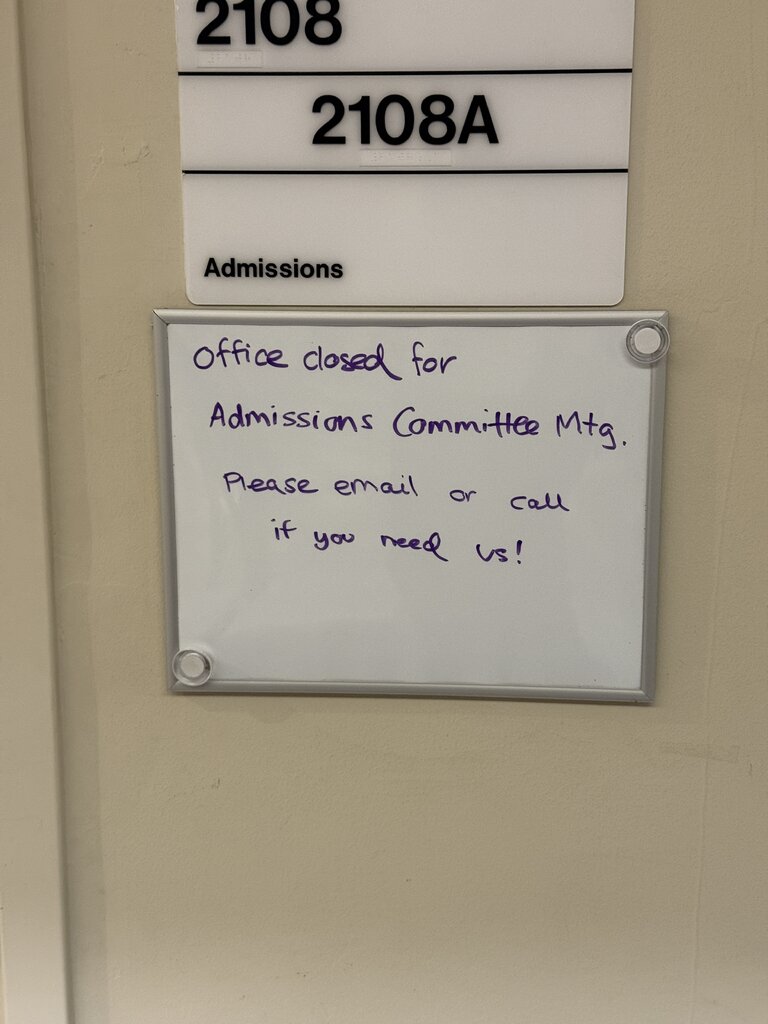 2108
2108A
Admissions
Office closed for
Admissions Committee Mtg.
Please email or call
if you need us!